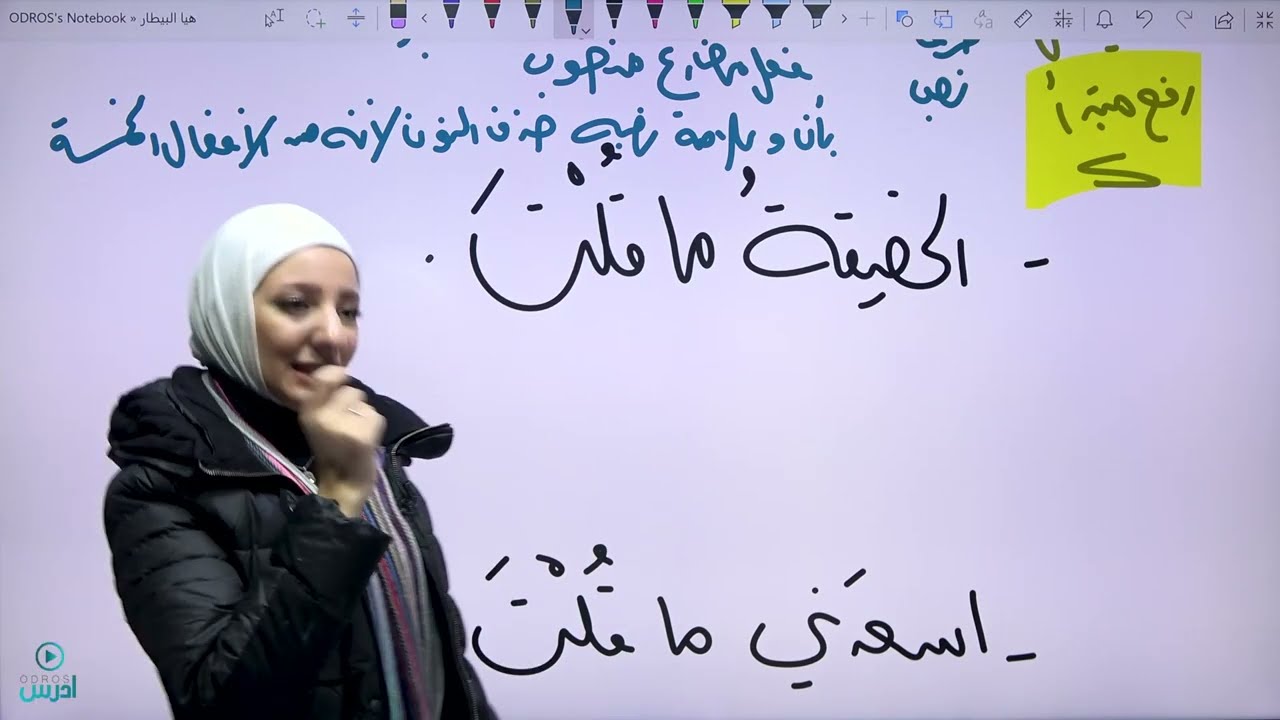 ODROS's Notebook » هيا البيطار
فعل مضارع منصوب
نصب
بأن وعلامة نصبه حذف النون لأنه من الأفعال الخمسة
- الحقيقةُ ما قُلْتَ .
- اسعدَني ما قُلْتَ
ODROS
ادرس